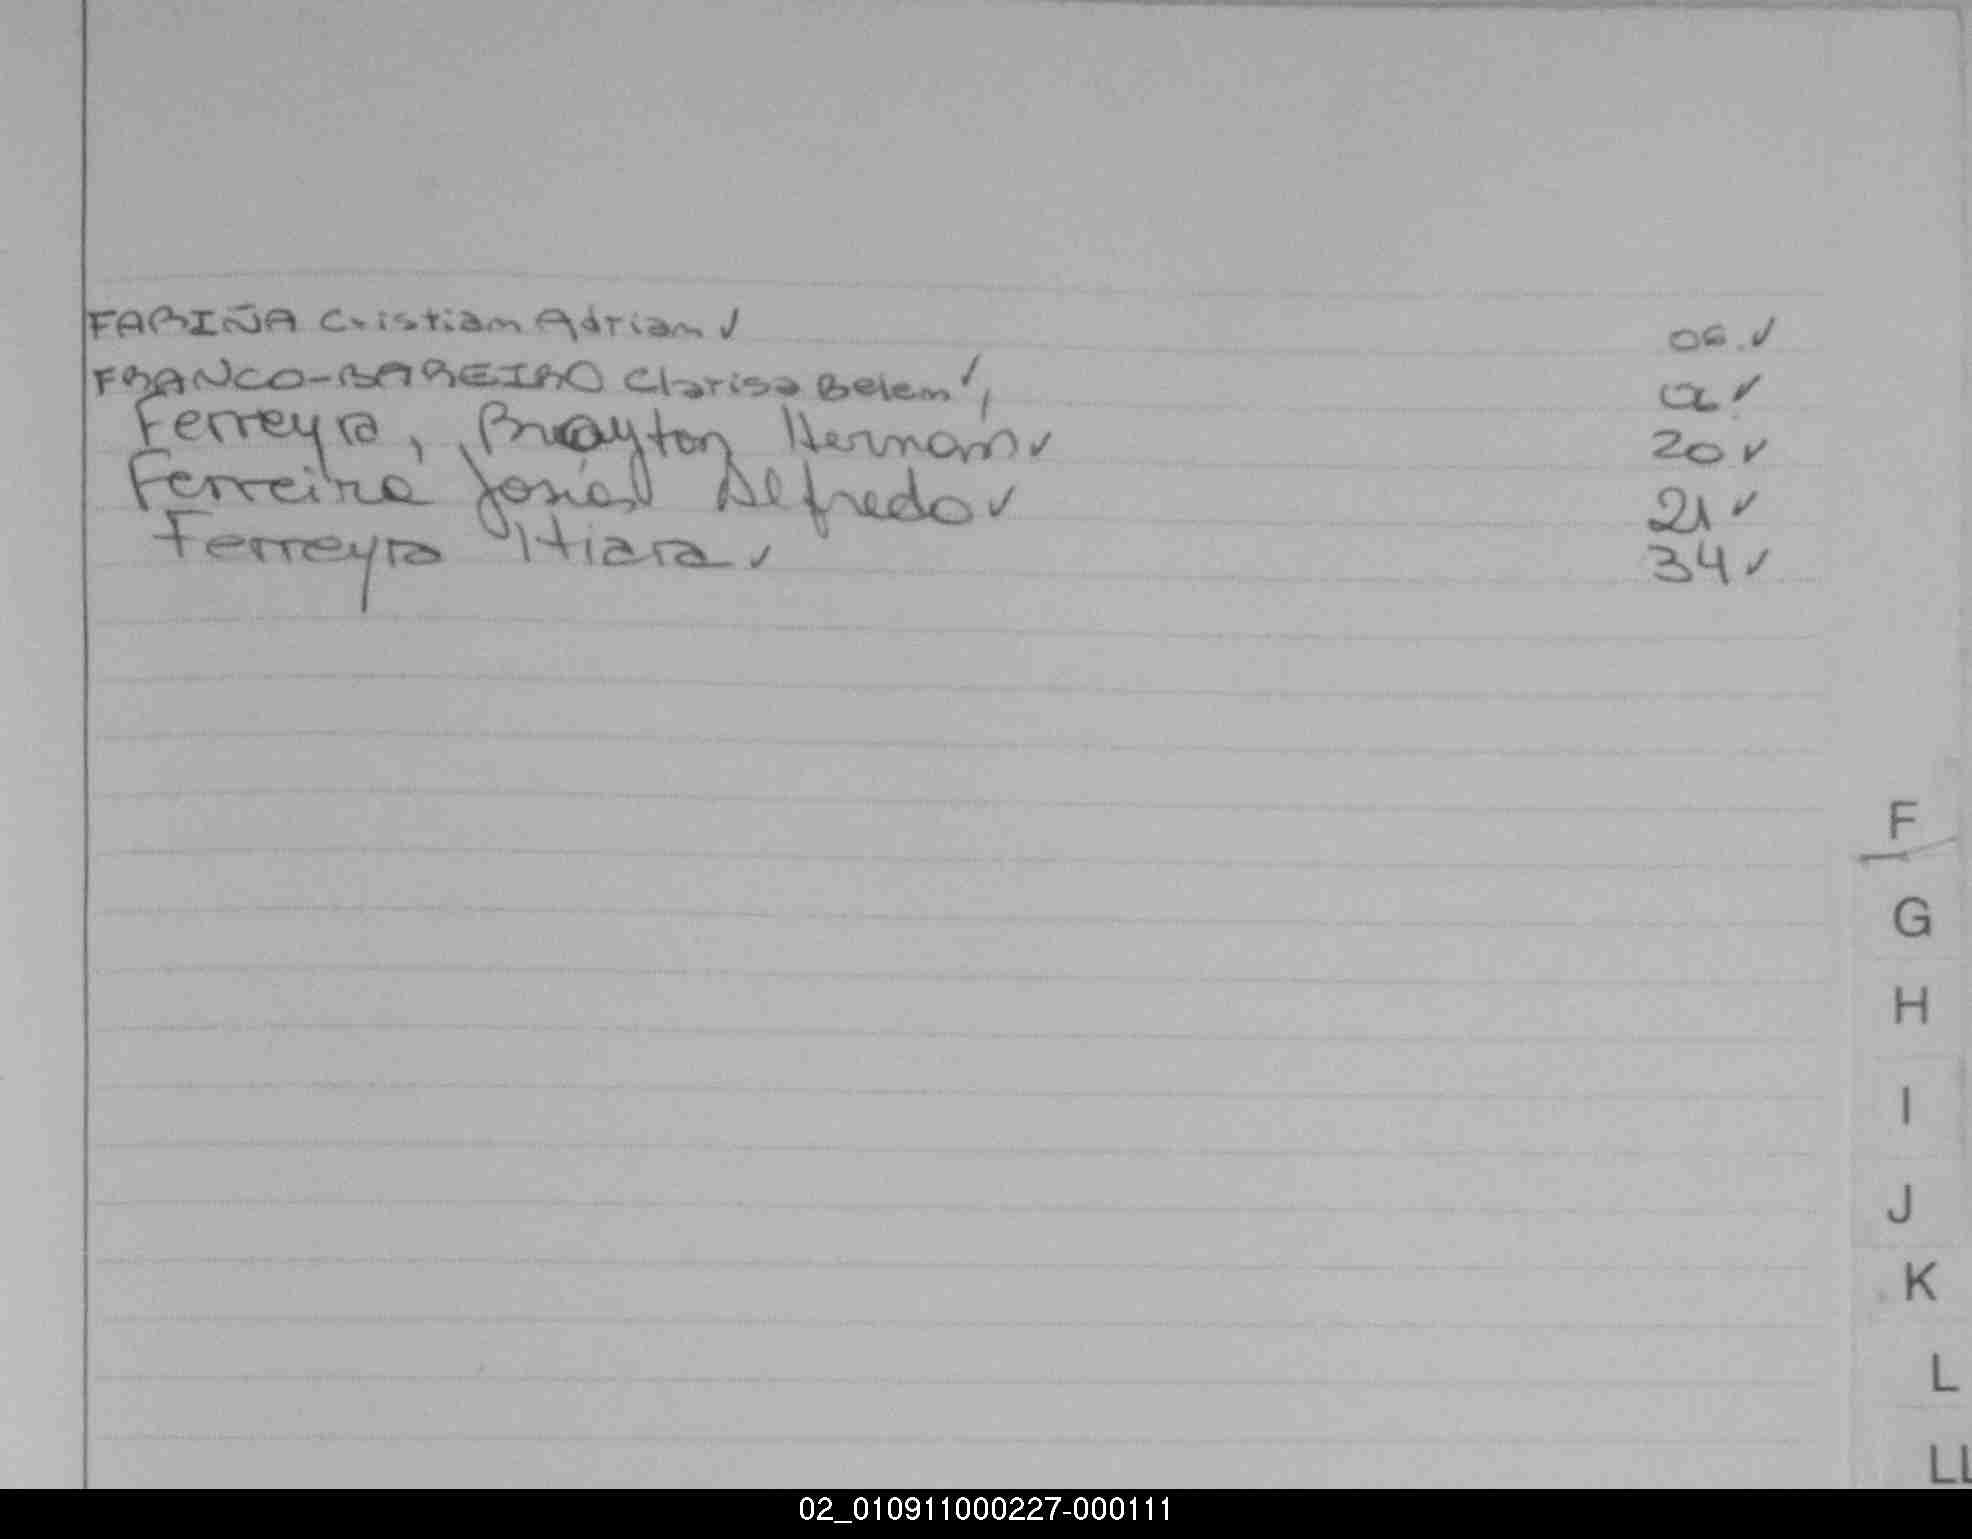 FARIÑA Cristian Adrian ✓ 06. ✓
FRANCO-BAREIRO Clarisa Belem ✓ ✓
Ferreyra, Brayton Hernan ✓ 20 ✓
Ferreira Josías Alfredo ✓ 21 ✓
Ferreyra Itiara ✓ 34 ✓
F
G
H
I
J
K
L
LL
02_010911000227-000111